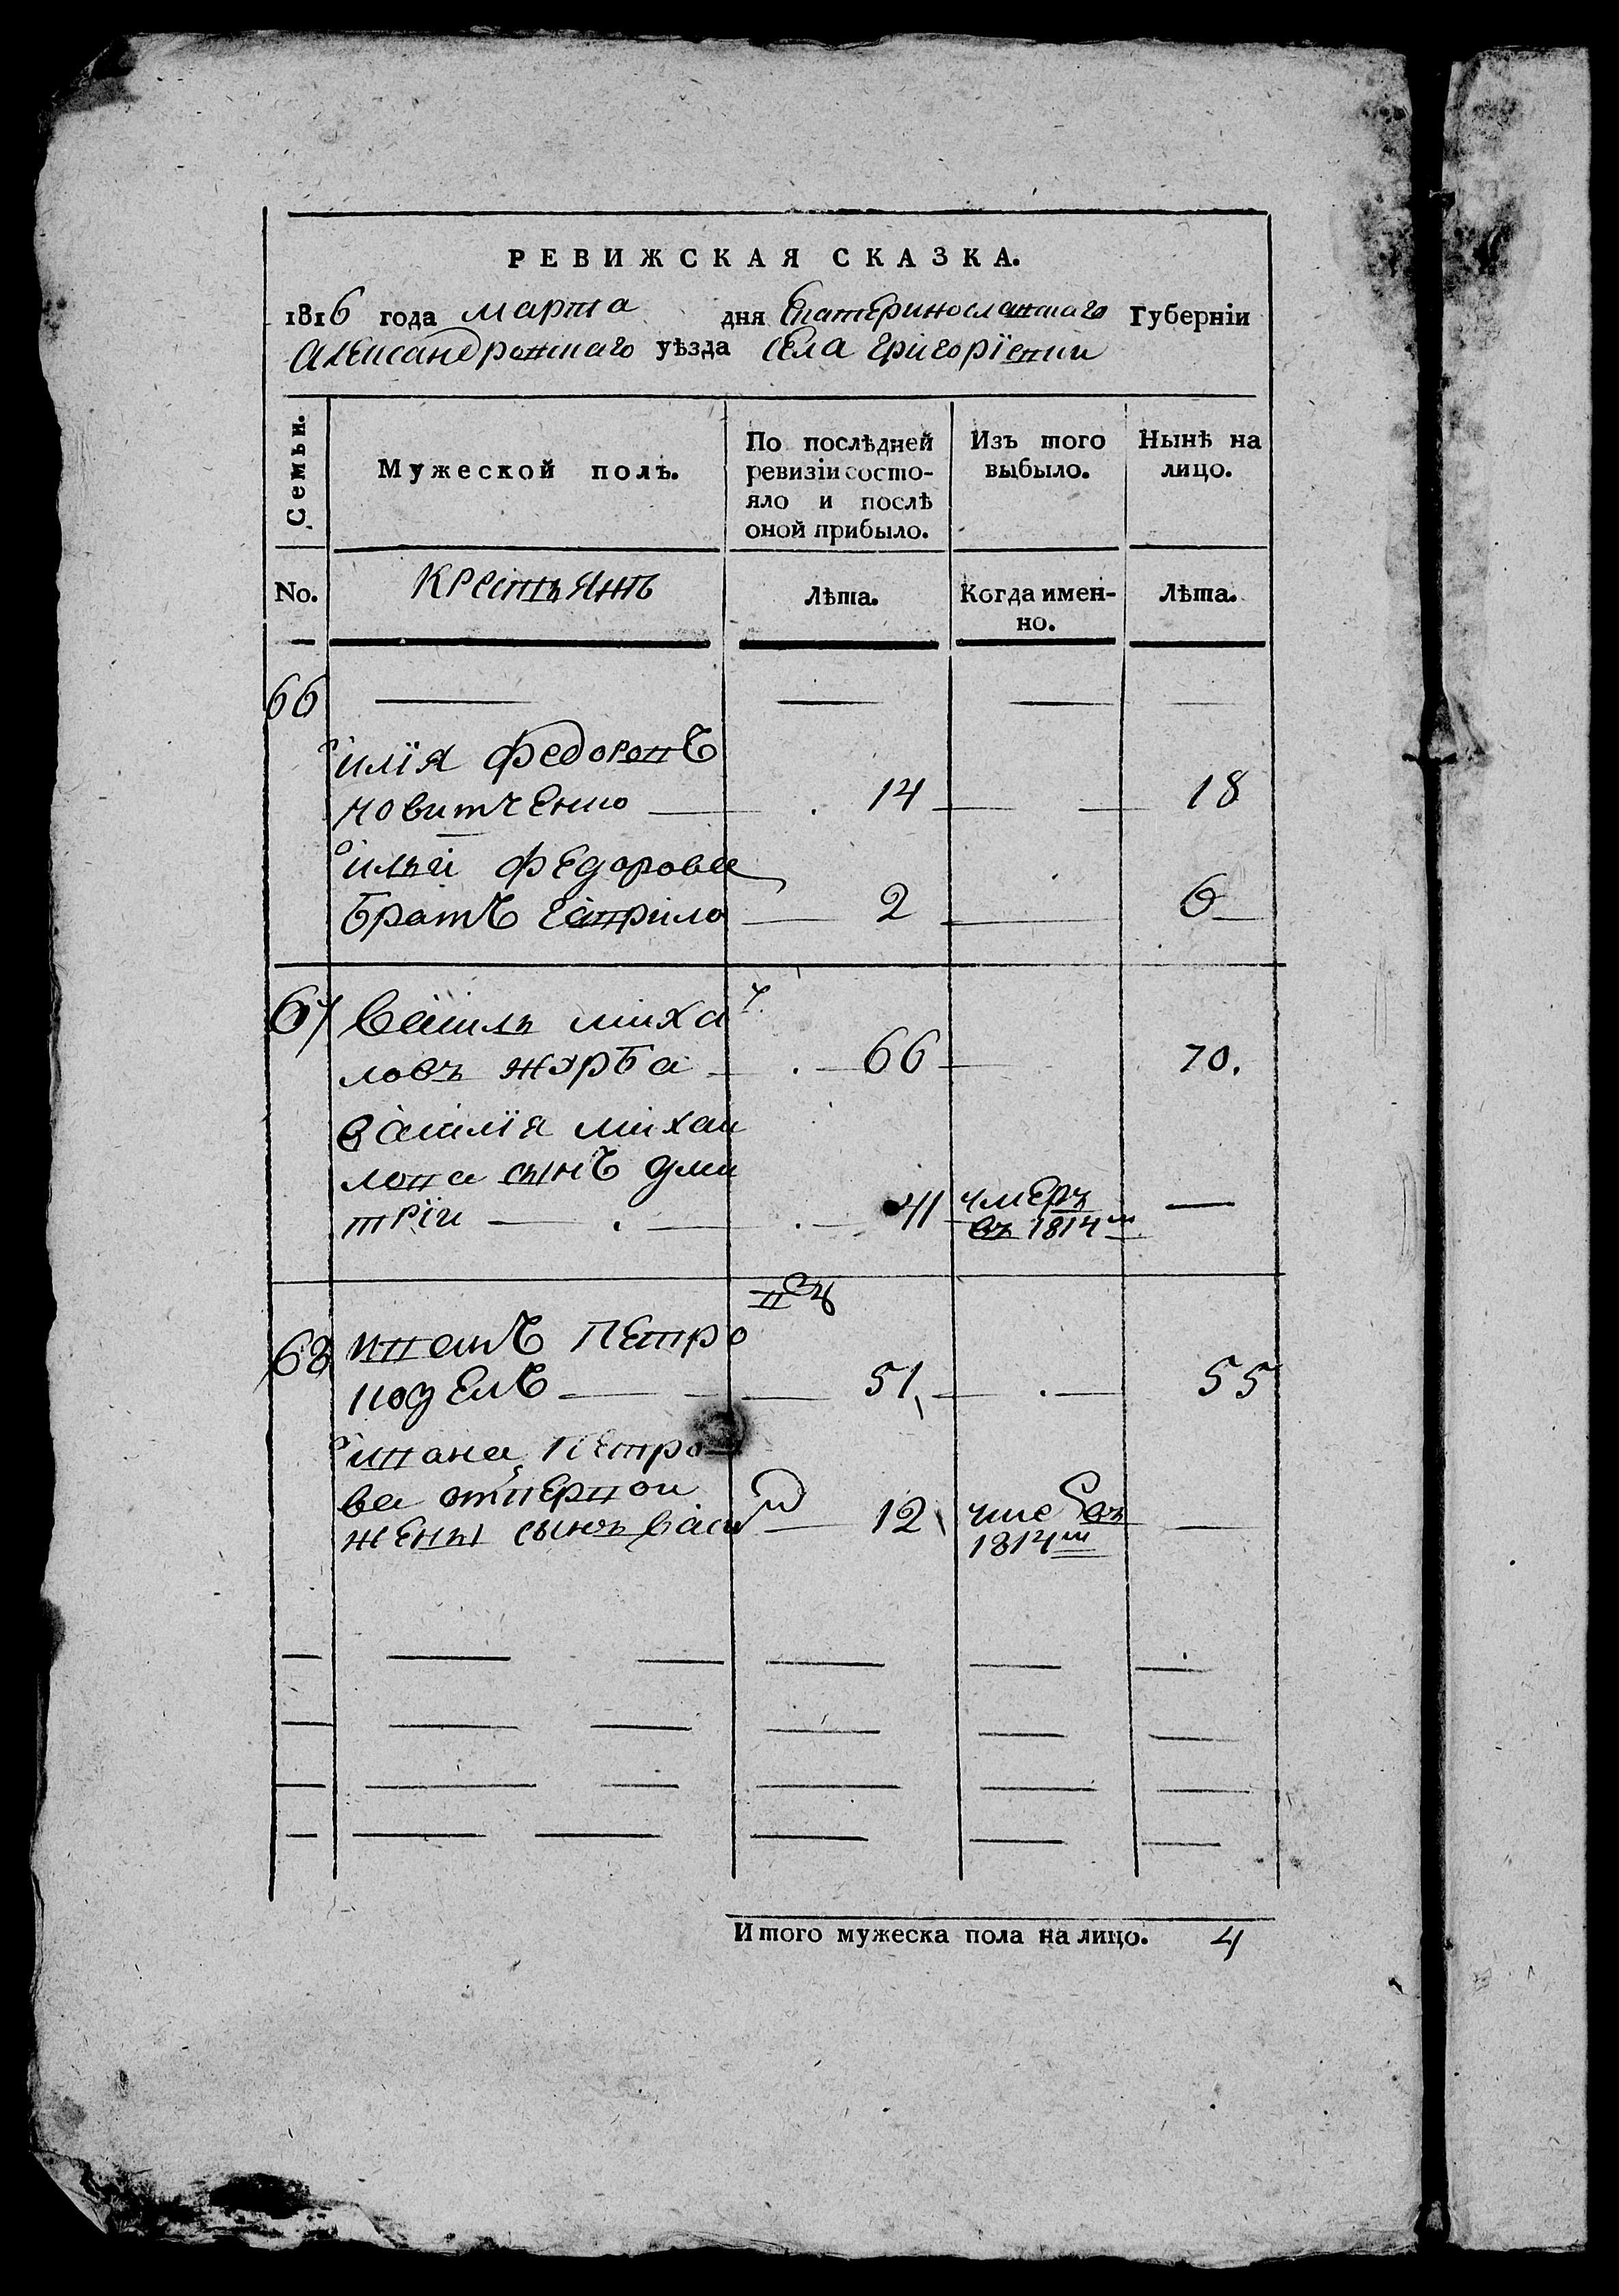 РЕВИЖСКАЯ СКАЗКА.
1816 года марта дня Екатеринославскаго Губерніи
Александровскаго уѣзда села григоріевки
Семьи. Мужеской полъ. По послѣдней ревизіи состояло и послѣ оной прибыло. Изъ того выбыло. Нынѣ на лицо.
No. Крестьянъ Лѣта. Когда именно. Лѣта.
66
илія федоровъ
новитченко 14 18
ильи федорова
братъ гаврило 2 6
67 василь михай
ловъ журба 66 70.
василія михаи
лова сынъ дми
трій 41 умеръ
въ 1814м
68 иванъ петровъ
51 55
ивана петро
ва отпервои
жены сынъ васил 12
1814м
Итого мужеска пола на лицо. 4